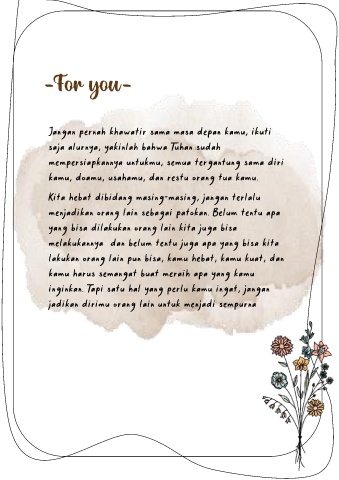 -For you-
Jangan pernah khawatir sama masa depan kamu, ikuti
saja alurnya, yakinlah bahwa Tuhan sudah
mempersiapkannya untukmu, semua tergantung sama diri
kamu, doamu, usahamu, dan restu orang tua kamu.
Kita hebat dibidang masing-masing, jangan terlalu
menjadikan orang lain sebagai patokan. Belum tentu apa
yang bisa dilakukan orang lain kita juga bisa
melakukannya dan belum tentu juga apa yang bisa kita
lakukan orang lain pun bisa, kamu hebat, kamu kuat, dan
kamu harus semangat buat meraih apa yang kamu
inginkan. Tapi satu hal yang perlu kamu ingat, jangan
jadikan dirimu orang lain untuk menjadi sempurna